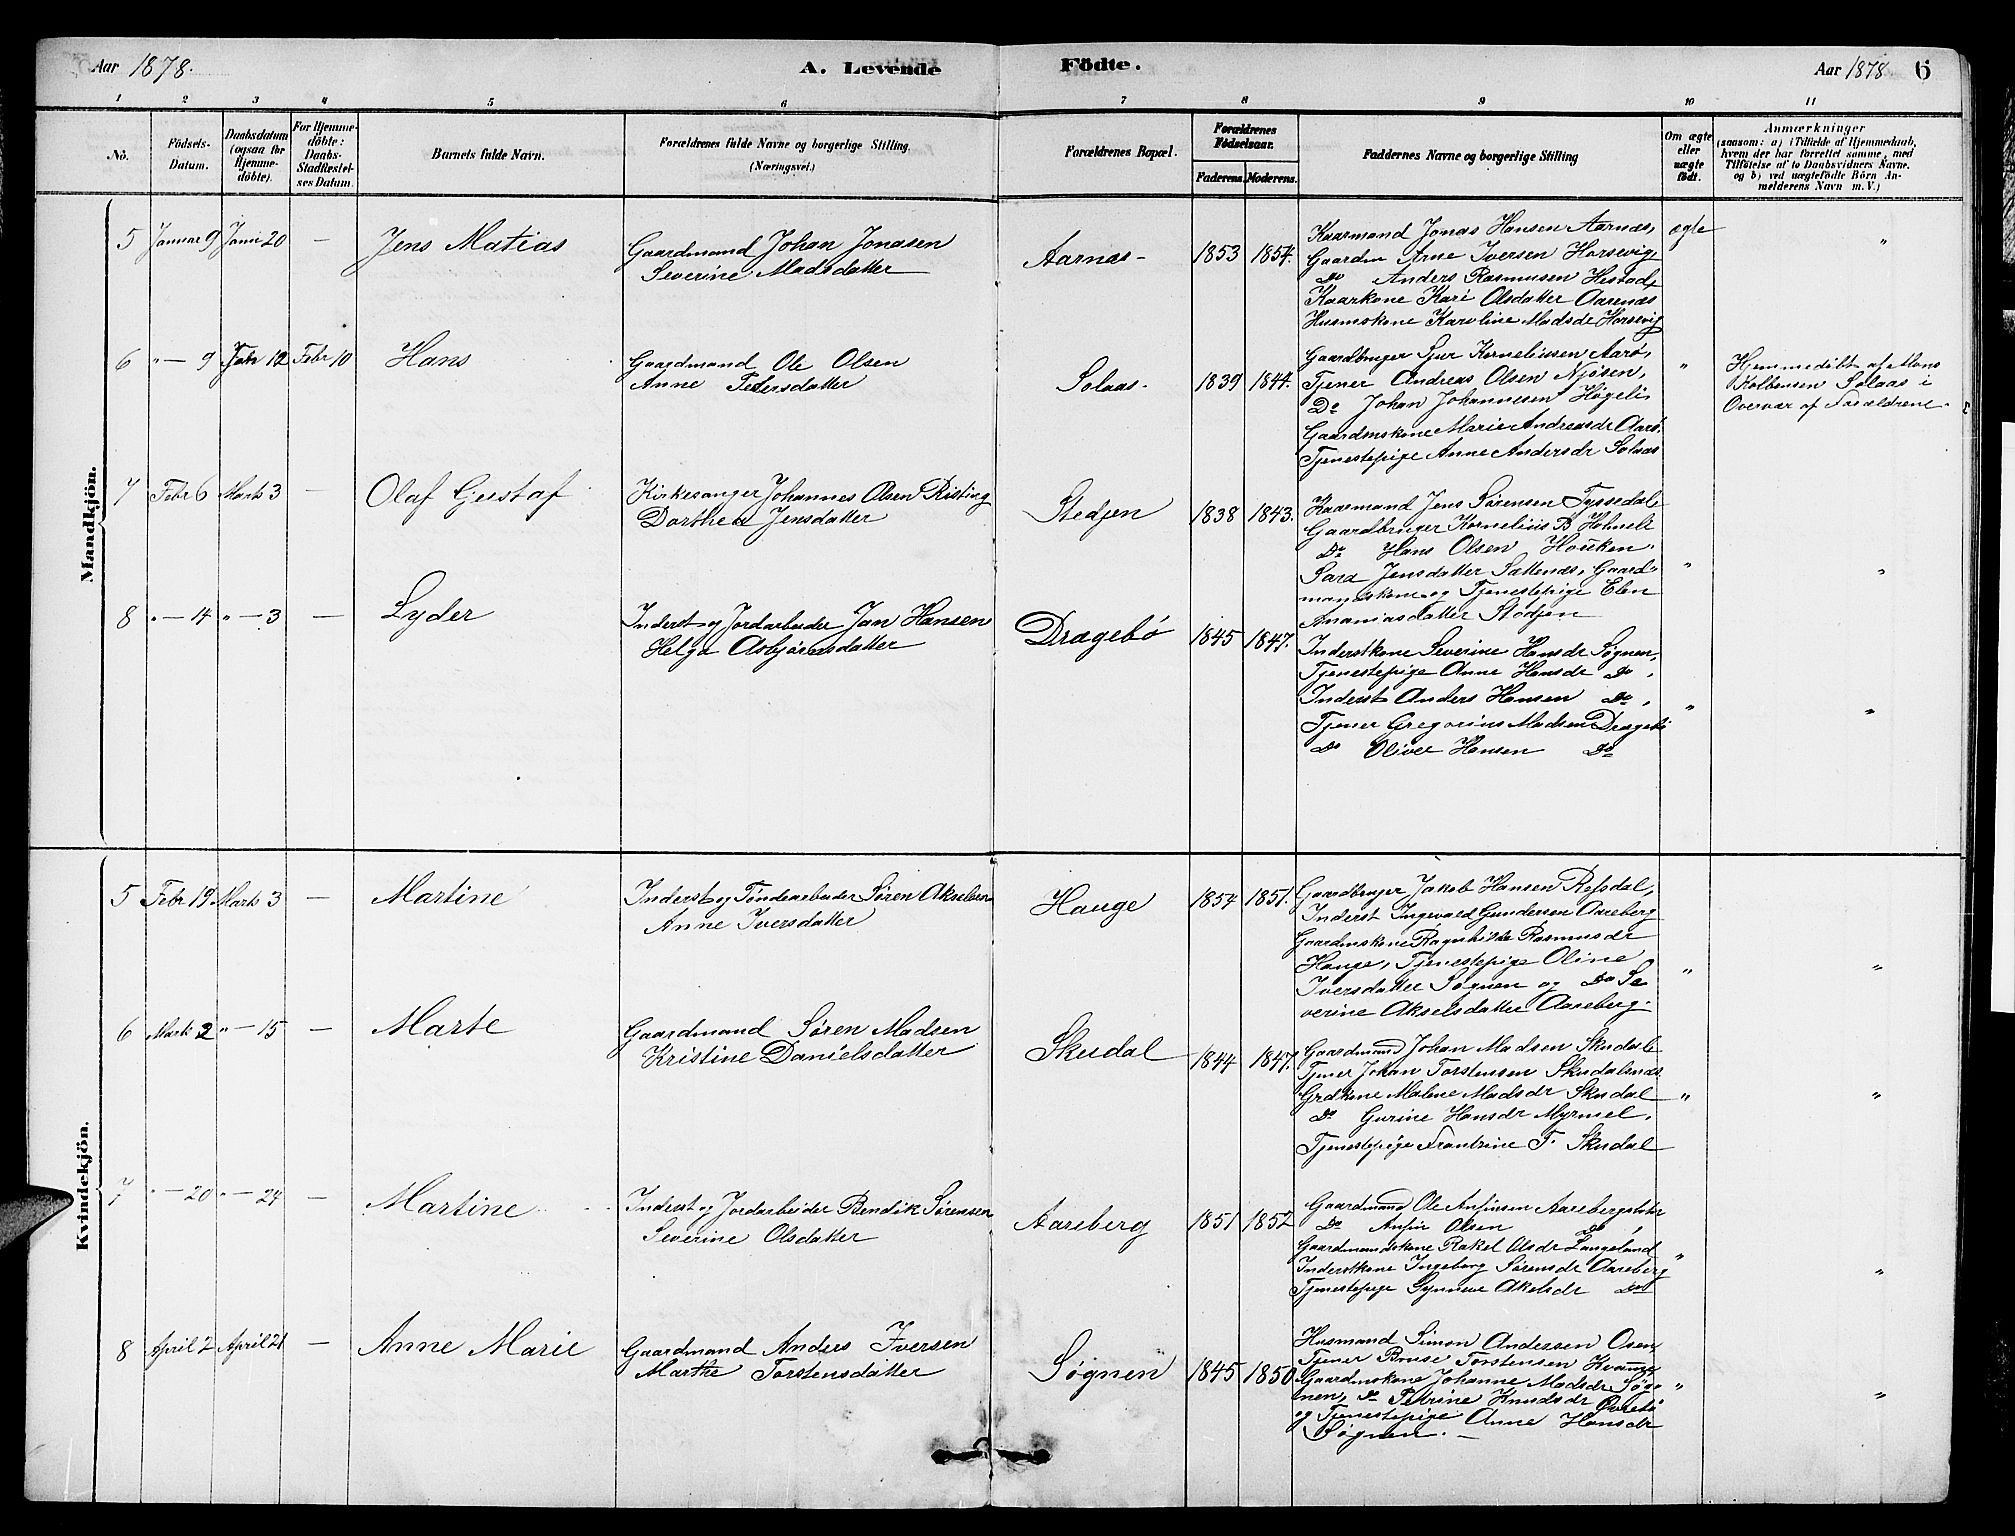 Aar 1878.
A. Levende
Födte.
Aar 1878
6
1 2 3 4 5 6 7 8 9 10 11
No.
Födsels-
Datum.
Daabsdatum
(ogsaa for
Hjemme-
döbte).
For Hjemme-
döbte:
Daabs-
Stadfæstel-
ses Datum.
Barnets fulde Navn.
Forældrenes fulde Navne og borgerlige Stilling.
(Næringsvei.)
Forældrenes Bopæl.
Forældrenes
Födselsaar.
Faderens.
Moderens.
Faddernes Navne og borgerlige Stilling
Om ægte
eller
uægte
födt.
Anmærkninger
(saasom: a) i Tilfælde af Hjemmedaab,
hvem der har forrettet samme, med
Tilföielse af to Daabsvidners Navne,
og b) ved uægtefödte Börn An-
melderens Navn m. V.)
Mandkjön.
5 Januar 9 Janu 20 — Jens Matias
Gaardmand Johan Jonasen
Severine Madsdatter
Aarnæs 1853 1854.
Kaarmand Jonas Hansen Aarnæs,
Gaardm Arne Iversen Horsevig,
Do Anders Rasmusen Hestad,
Kaarkone Kari Olsdatter Aarenæs
Husmskone Karoline Madsdr Horsevig
ægte "
6 " — 9 Febr 12 Febr 10 Hans
Gaardmand Ole Olsen
Anne Petersdatter
Solaas 1839 1844.
Gaardbruger Sjur Korneliusen Aarø,
Tjener Andreas Olsen Njøsen,
Do Johan Johannesen Høgeli
Gaardmskone Marie Andreasdr Aarø
Tjenestepige Anne Andersdr Solaas
"
Hjemmedøbt af Mons
Kolbensen Solaas i
Overvær af Forældrene.
7 Febr 6 Marts 3 — Olaf Gustaf
Kirkesanger Johannes Olsen Risting
Dorthea Jensdatter
Stedjen 1838 1843.
Kaarmand Jens Sørensen Tyssedal
Gaardbruger Kornelius B Holmeli
Do Hans Olsen Houken
Sara Jensdatter Sættenæs, Gaard-
mandskone og Tjenestepige Elen
Ananiasdatter Stedjen
" "
8 " — 14 " — 3 — Lyder
Inderst og Jordarbeider Jan Hansen
Helga Asbjørnsdatter
Dragebø 1845 1847.
Inderstkone Severine Hansdr Søgnen,
Tjenestepige Anne Hansdr Do,
Inderst Anders Hansen Do,
Tjener Gregorius Madsen Dragebø
Do Oliver Hansen Do
" "
Kvindekjön.
5 Febr 19 Marts 3 — Martine
Inderst og Tøndearbeider Søren Akselsen
Anne Iversdatter
Hauge 1854 1851.
Gaardbruger Jakob Hansen Refsdal,
Inderst Ingevald Gundersen Aareberg
Gaardmskone Ragnhilda Rasmusdr
Hauge, Tjenestepige Oline
Iversdatter Søgnen og Do Se
verine Akselsdatter Aareberg.
" "
6 Marts 2 " — 15 — Marte
Gaardmand Søren Madsen
Kristine Danielsdatter
Skudal 1844 1847.
Gaardmand Johan Madsen Skudal
Tjener Johan Torstensen Skudalsnæs
Grdkone Malene Madsdr Skudal
Do Gurine Hansdr Myrmel,
Tjenestepige Frantzine T. Skudal
" "
7 " — 20 " — 24 — Martine
Inderst og Jordarbeider Bendik Sørensen
Severine Olsdatter
Aareberg 1851 1852
Gaardmand Ole Anfinsen Aarebergsbotn
Do Anfin Olsen Do,
Gaardmandskone Rakel Olsdr Langeland
Inderstkone Ingeborg Sørensdr Aareberg
Tjenestepige Synneve Akselsdr Do
" "
8 April 2 April 21 — Anne Marie
Gaardmand Anders Iversen
Marthe Torstensdatter
Søgnen 1845 1850
Husmand Simon Andersen Osen,
Tjener Bruse Torstensen Kvamme,
Gaardmskone Johanne Madsdr Søg-
nen, Do Petrine Knudsdr Øvrebø
og Tjenestepige Anne Hansdr
Søgnen. —
" "